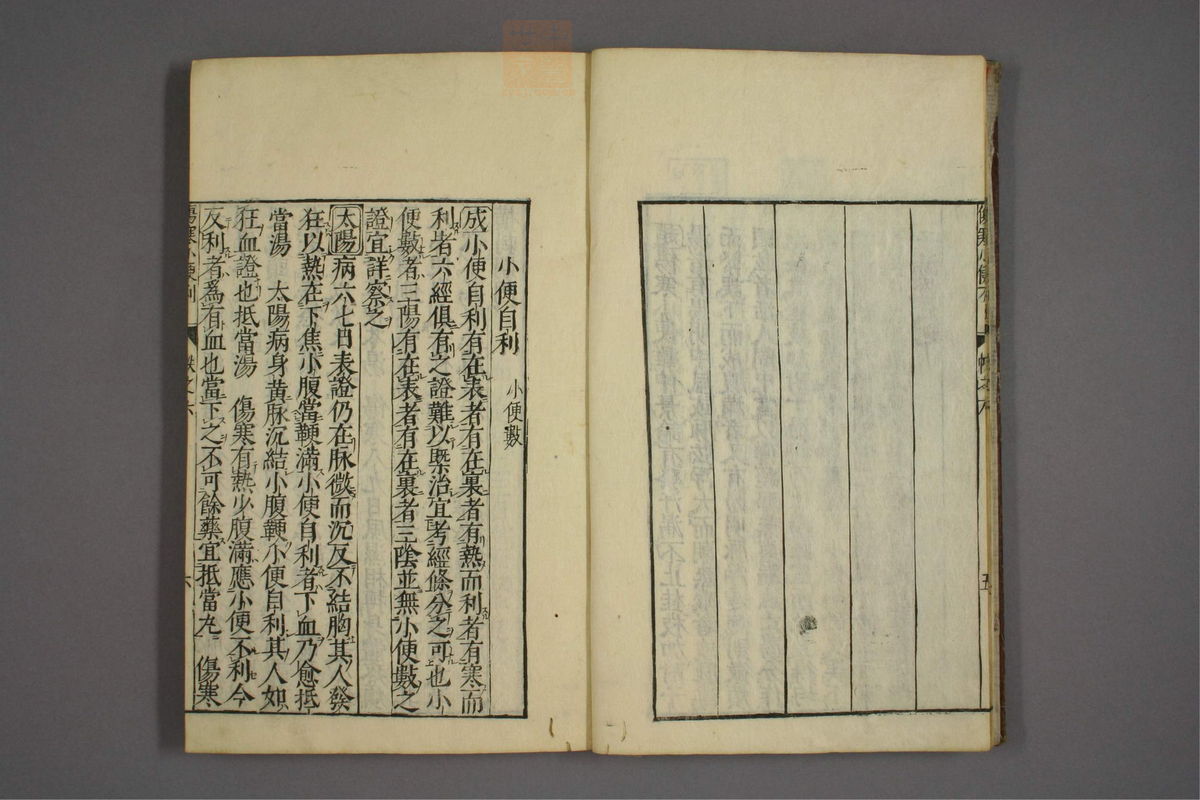 五
小便自利 小便數
成小便自利有在表者有在裏者有熱而利者有寒而
利者六經俱有之證難以槩治宜考經條分之可也小
便數者三陽有在表者有在裏者三陰並無小便數之
證宜詳察之
太陽病六七日表證仍在脉微而沉反不結胸其人發
狂以熱在下焦小腹當鞕滿小便自利者下血乃愈抵
當湯 太陽病身黃脉沉結小腹鞕小便自利其人如
狂血證也抵當湯 傷寒有熱少腹滿應小便不利今
反利者爲有血也當下之不可餘藥宜抵當丸 傷寒
傷寒小便利 帙之六 六